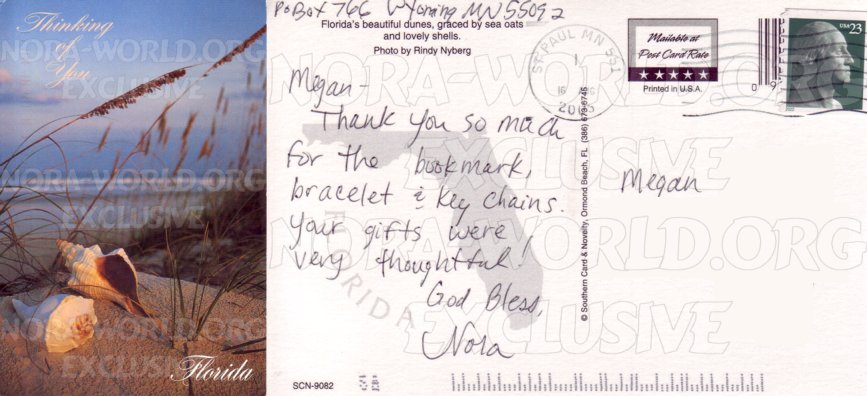 Thinking
of
You
Florida
PO Box 766 Wyoming MN 55092
Florida's beautiful dunes, graced by sea oats
and lovely shells.
Photo by Rindy Nyberg
Megan-
Thank you so much
for the bookmark,
bracelet & key chains.
Your gifts were
very thoughtful!
God Bless,
Nora
FLORIDA
SCN-9082
© Southern Card & Novelty, Ormond Beach, FL (386) 673-6745
ST PAUL MN 551
16
Mailable at
Post Card Rate
Printed in U.S.A.
0 9
USA 23
Megan
NORA-WORLD.ORG
EXCLUSIVE
NORA-WORLD.ORG
EXCLUSIVE
NORA-WORLD.ORG
EXCLUSIVE
NORA-WORLD.ORG
EXCLUSIVE
NORA-WORLD.ORG
EXCLUSIVE
NORA-WORLD.ORG
EXCLUSIVE